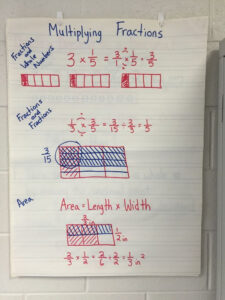 Multiplying Fractions
Fractions and Whole Numbers
3 × 1/5 = 3/1 × 1/5 = 3/5
Fractions and Fractions
1/3 × 3/5 = 3/15 ÷ 3/3 = 1/5
3/15
Area
Area = Length × Width
2/3 in
1/2 in
2/3 × 1/2 = 2/6 ÷ 2/2 = 1/3 in²